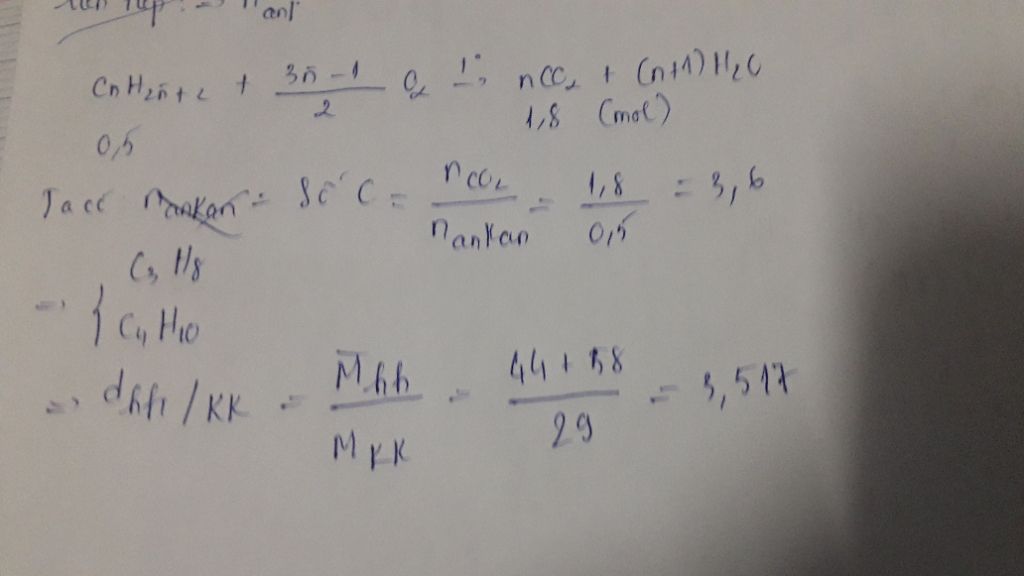 liên tiếp: => nank
CnH2n̄+2 + (3n̄-1)/2 O2 t°→ nCO2 + (n+1)H2O
0,5 1,8 (mol)
Ta có nankan = Số C = nCO2/nankan = 1,8/0,5 = 3,6
=> { C3H8
C4H10
=> dhh/KK = M̄hh/MKK = (44+58)/29 = 3,517